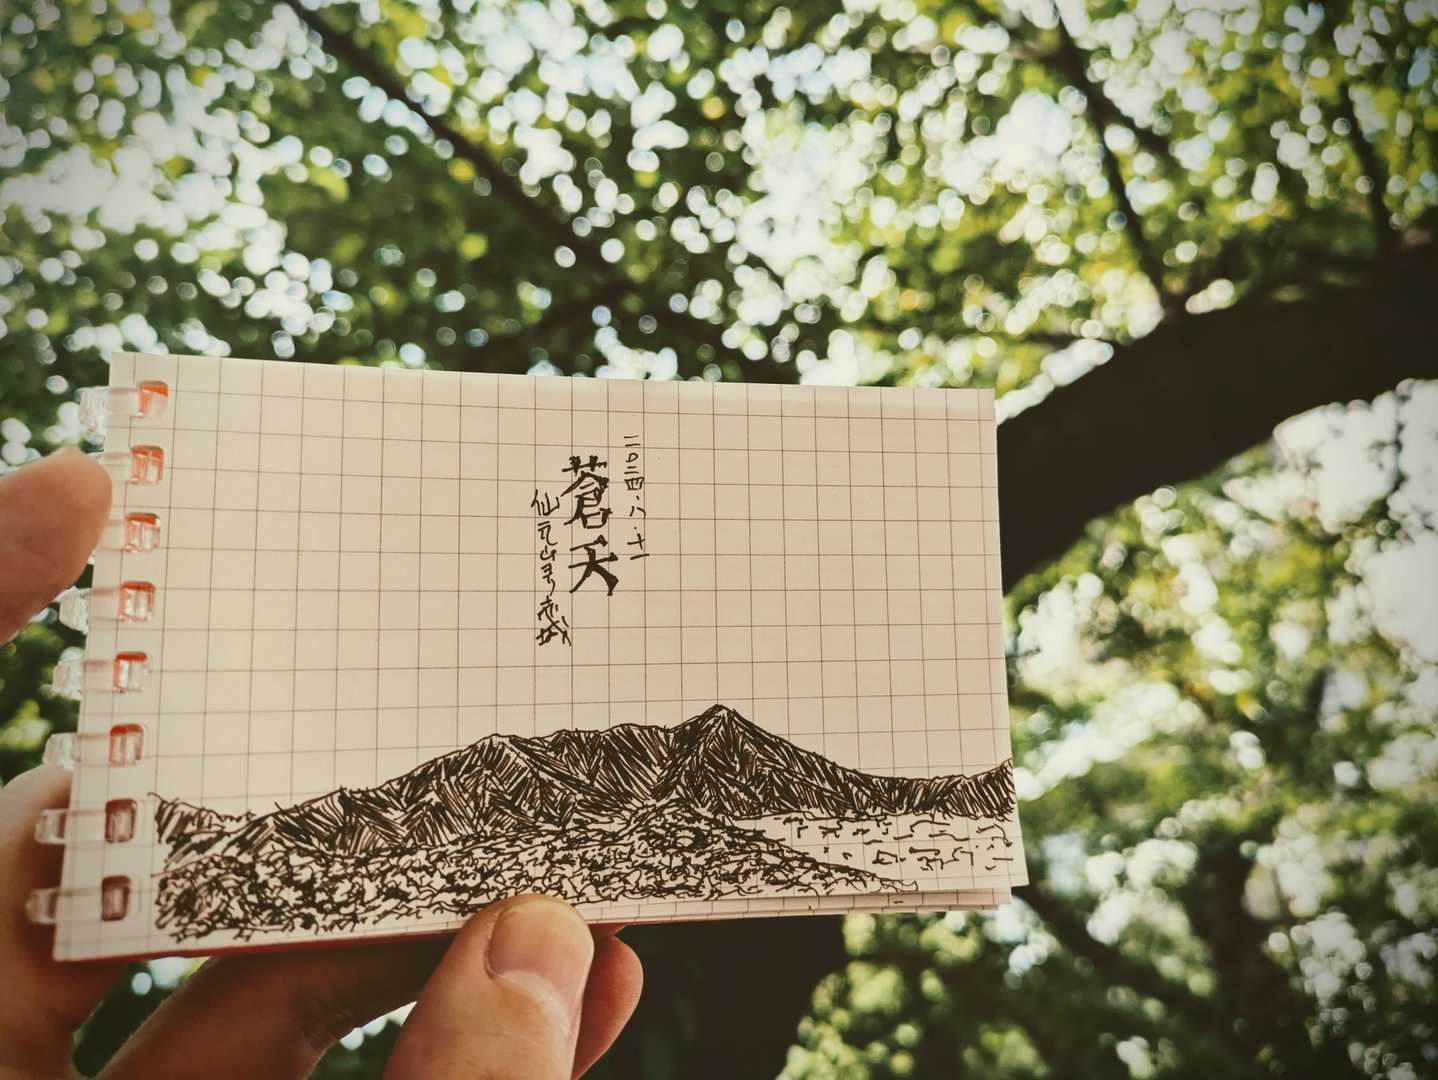 二〇二四.八.十一
蒼天
仙元山ヨリ赤城